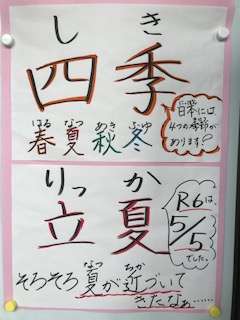 しき
四季
はる なつ あき ふゆ
春 夏 秋 冬
日本には
4つの季節が
あります!
りっか
立夏
R6は、
5/5
でした。
なつ ちか
そろそろ夏が近づいて
きたなぁ……